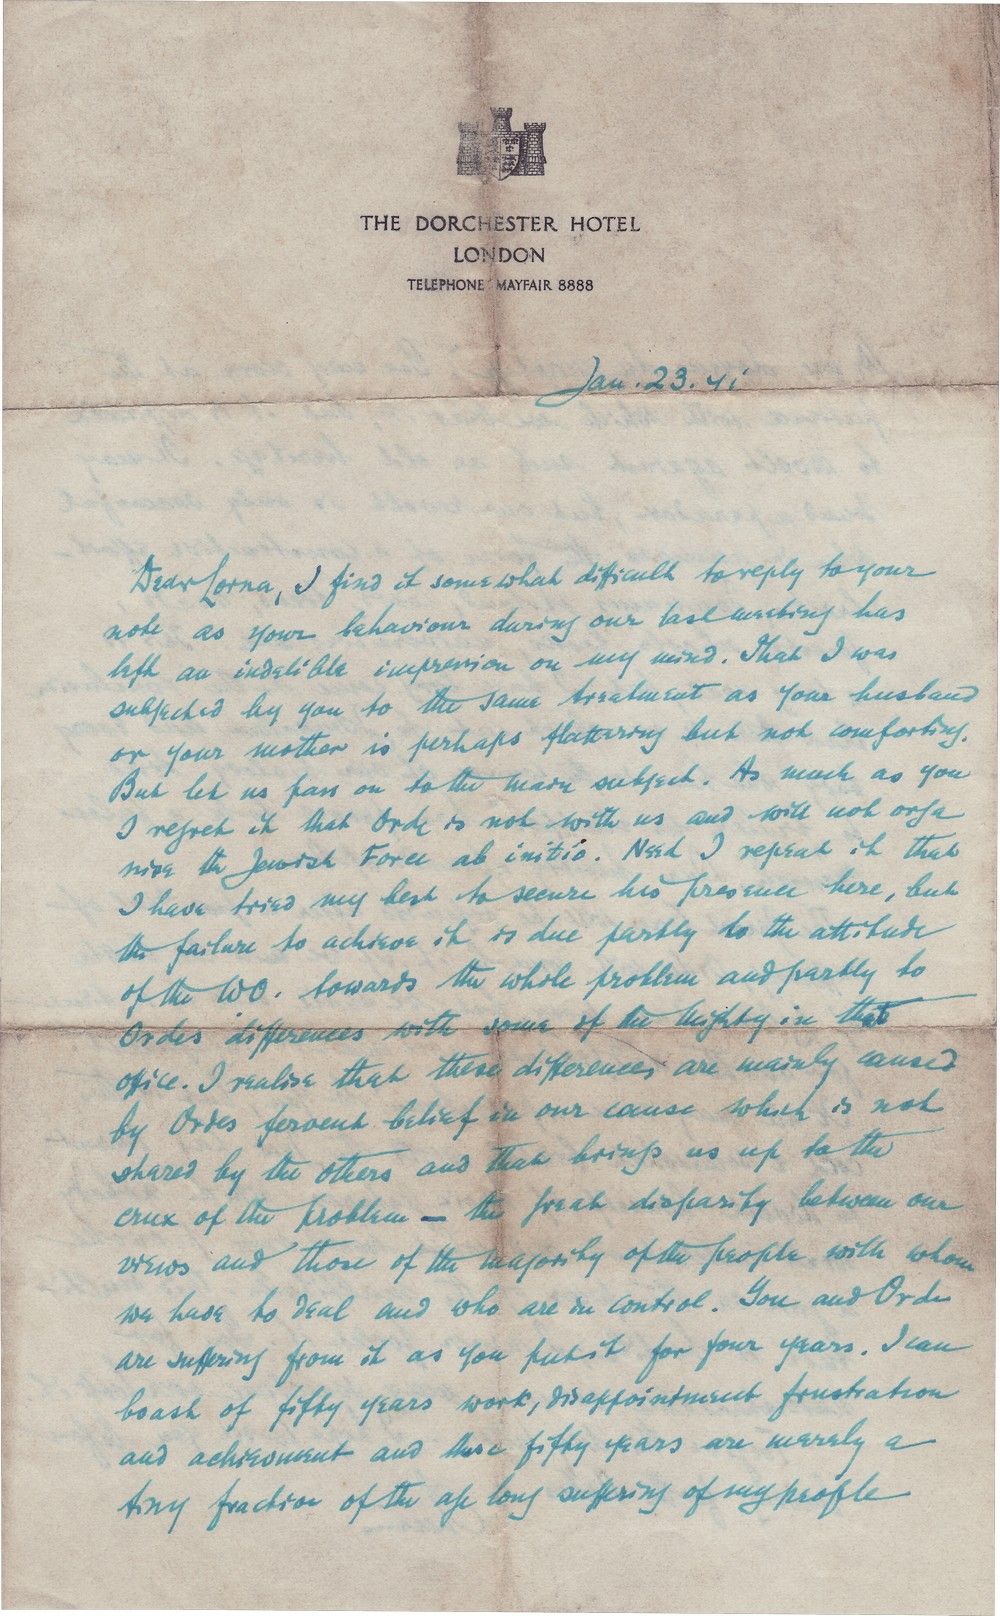 THE DORCHESTER HOTEL
LONDON
TELEPHONE MAYFAIR 8888
Jan. 23. 41
Dear Lorna, I find it somewhat difficult to reply to your
note as your behaviour during our last meeting has
left an indelible impression on my mind. That I was
subjected by you to the same treatment as your husband
or your mother is perhaps flattering but not comforting.
But let us pass on to the main subject. As much as you
I regret it that Orde is not with us and will not orga
nise the Jewish Force ab initio. Need I repeat it that
I have tried my best to secure his presence here, but
the failure to achieve it is due partly to the attitude
of the WO. towards the whole problem and partly to
Ordes differences with some of the Mighty in that
office. I realise that these differences are mainly caused
by Ordes fervent belief in our cause which is not
shared by the others and that brings us up to the
crux of the problem — the great disparity between our
views and those of the majority of the people with whom
we have to deal and who are in control. You and Orde
are suffering from it as you put it for four years. I can
boast of fifty years work, disappointment frustration
and achievement and these fifty years are merely a
tiny fraction of the age long suffering of my people